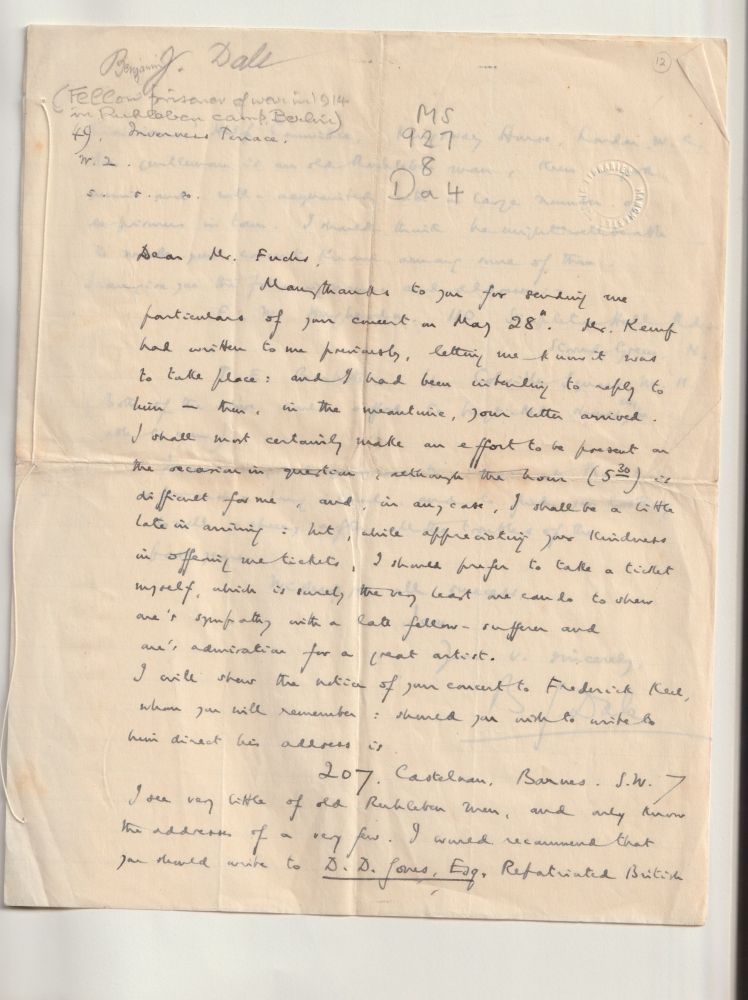 Benjamin J. Dale
(Fellow prisoner of war in 1914
in Ruhleben camp, Berlin)
12
MS
927
8
Da 4
49. Inverness Terrace.
W. 2.
Dear Mr. Fuchs,
Many thanks to you for sending me
particulars of your concert on May 28th. Mr. Kemp
had written to me previously, letting me know it was
to take place: and I had been intending to reply to
him — then, in the meantime, your letter arrived.
I shall most certainly make an effort to be present on
the occasion in question; although the hour (5 30) is
difficult for me, and, in any case, I shall be a little
late in arriving: but, while appreciating your kindness
in offering me tickets, I should prefer to take a ticket
myself, which is surely the very least one can do to show
one's sympathy with a late fellow-sufferer and
one's admiration for a great artist.
I will show the notice of your concert to Frederick Keel,
whom you will remember: should you wish to write to
him direct his address is
207, Castelnau, Barnes. S.W.
I see very little of old Ruhleben men, and only know
the addresses of a very few. I would recommend that
you should write to D. D. Jones, Esq. Repatriated British